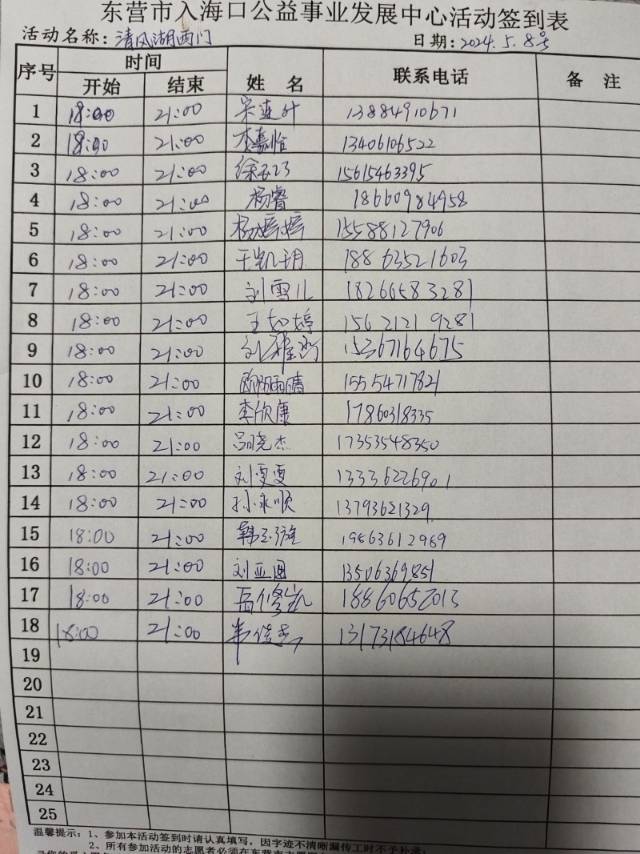 东营市入海口公益事业发展中心活动签到表
活动名称:清风湖西门 日期:2024.5.8号
序号 时间 姓名 联系电话 备注
开始 结束
1 18:00 21:00 13884910671
2 18:00 21:00 李嘉怡 13406106522
3 18:00 21:00 15615463395
4 18:00 21:00 杨睿 18660984958
5 18:00 21:00 杨婷婷 15588127906
6 18:00 21:00 王凯玥 18863521603
7 18:00 21:00 刘雪儿 18266583281
8 18:00 21:00 王如婷 15621219281
9 18:00 21:00 15367164675
10 18:00 21:00 欧阳雨晴 15554717821
11 18:00 21:00 李欣康 17860318335
12 18:00 21:00 吕晓杰 17353548350
13 18:00 21:00 刘雯雯 13336226901
14 18:00 21:00 孙永顺 13793621329
15 18:00 21:00 19863612989
16 18:00 21:00 13506369851
17 18:00 21:00 18860652013
18 18:00 21:00 13173184648
19
20
21
22
23
24
25
温馨提示:1、参加本活动签到时请认真填写,因字迹不清晰漏传工时不予补录;
2、所有参加活动的志愿者必须在东营市志愿